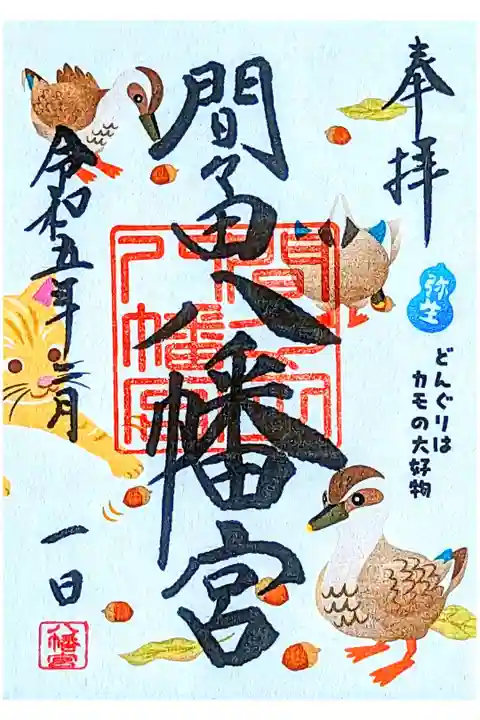 奉拝
弥生
どんぐりは
カモの大好物
間々田八幡宮
間々田
八幡宮
令和五年三月
一日
八幡宮